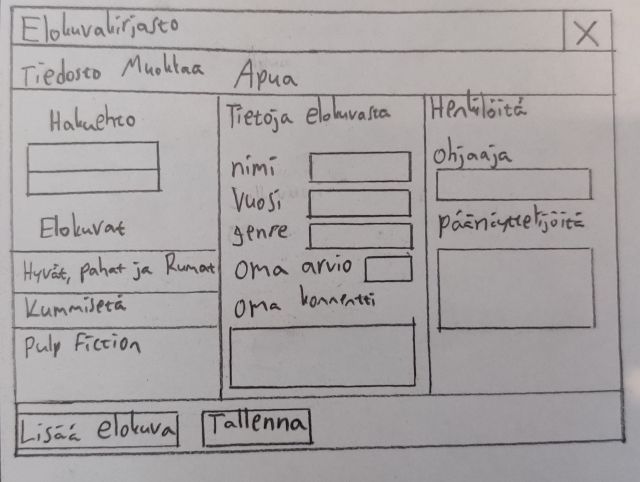 Elokuvakirjasto X
Tiedosto Muokkaa Apua
Hakuehto
Elokuvat
Hyvät, pahat ja Rumat
Kummisetä
Pulp Fiction
Tietoja elokuvasta
nimi
Vuosi
genre
oma arvio
oma kommentti
Henkilöitä
ohjaaja
päänäyttelijöitä
Lisää elokuva
Tallenna